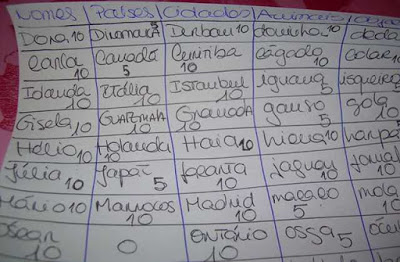 Nomes Países Cidades Animais
Dora 10 Dinamarca 5 Durban 10 doninha 10 deda
Carla 10 Canadá 5 Curitiba 10 cágado 10 colar
Iolanda 10 Itália 10 Istanbul 10 iguana 5 isqueiro
Gisela 10 GUATEMALA 10 GRANADA 10 ganso 5 gola
Hélio 10 Holanda 10 Haia 10 hiena 10 harpa
Júlia 10 Japão 5 Jakarta 10 jaguar 10 jornal
Mário 10 Marrocos 10 Madrid 10 macaco 5 mola
Óscar 10 0 ONTÁRIO 10 ossga 5